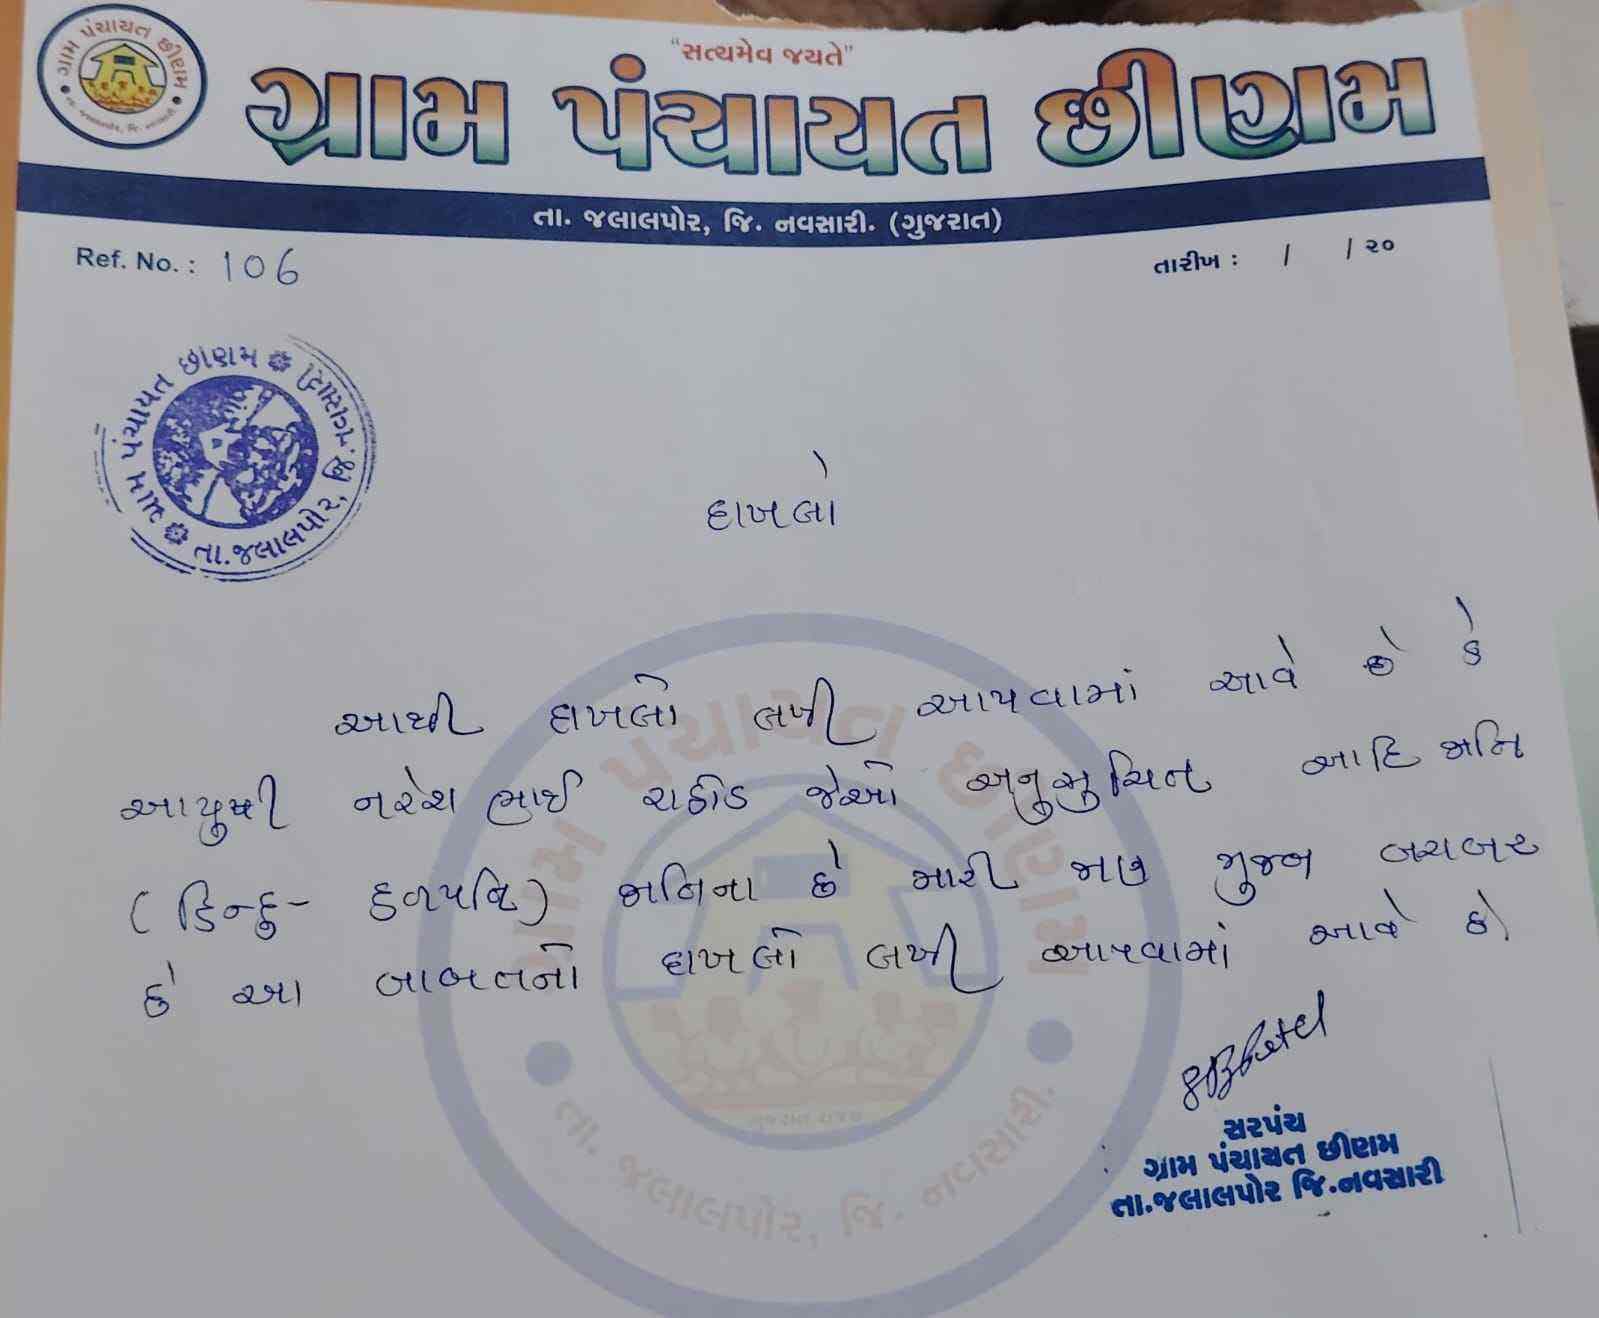 "સત્યમેવ જયતે"
ગ્રામ પંચાયત છીણમ
ગ્રામ પંચાયત છીણમ
તા. જલાલપોર, જિ. નવસારી. (ગુજરાત)
Ref. No. : 106
તારીખ : / / ૨૦
ગ્રામ પંચાયત છીણમ
તા.જલાલપોર, જી.નવસારી
દાખલો
આથી દાખલો લખી આપવામાં આવે છે કે
આયુષી નરેશભાઈ રાઠોડ જેઓ અનુસુચિત આદિ જાતિ
(હિન્દુ- હળપતિ) જાતિના છે મારી જાણ મુજબ બરાબર
છે આ બાબતનો દાખલો લખી આપવામાં આવે છે.
સરપંચ
ગ્રામ પંચાયત છીણમ
તા.જલાલપોર જિ.નવસારી
ગ્રામ પંચાયત છીણમ
તા. જલાલપોર, જિ. નવસારી.